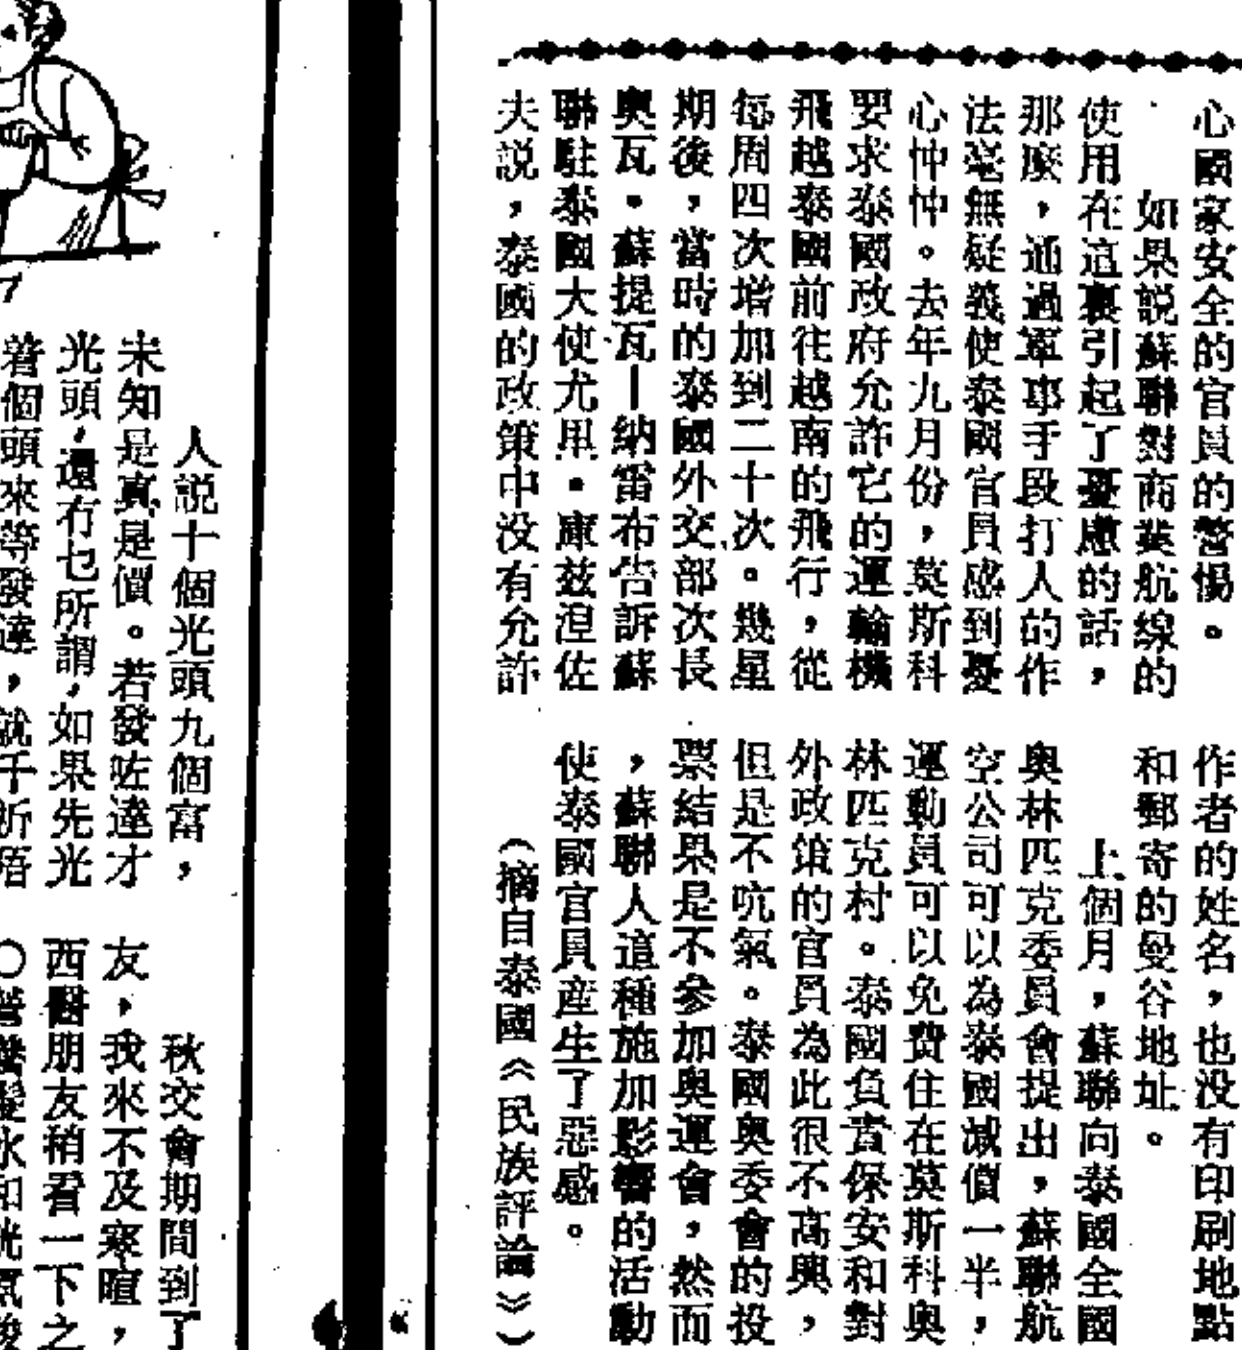 心國家安全的官員的警惕。
如果説蘇聯對商業航線的
使用在這裏引起了憂慮的話，
那麽，通過軍事手段打人的作
法毫無疑義使泰國官員感到憂
心忡忡。去年九月份，莫斯科
要求泰國政府允許它的運輸機
飛越泰國前往越南的飛行，從
每周四次增加到二十次。幾星
期後，當時的泰國外交部次長
奥瓦·蘇提瓦—納雷布告訴蘇
聯駐泰國大使尤里·庫兹涅佐
夫説，泰國的政策中没有允許
作者的姓名，也没有印刷地點
和郵寄的曼谷地址。
上個月，蘇聯向泰國全國
奥林匹克委員會提出，蘇聯航
空公司可以為泰國減價一半，
運動員可以免費住在莫斯科奥
林匹克村。泰國負責保安和對
外政策的官員為此很不高興，
但是不吭氣。泰國奥委會的投
票結果是不參加奥運會，然而
，蘇聯人這種施加影響的活動
使泰國官員産生了惡感。
（摘自泰國《民族評論》）
人説十個光頭九個富，
未知是真是價。若發咗達才
光頭，還冇乜所謂，如果先光
着個頭來等發達，就千祈唔
秋交會期間到了
友，我來不及寒暄，
西醫朋友稍看一下之
7